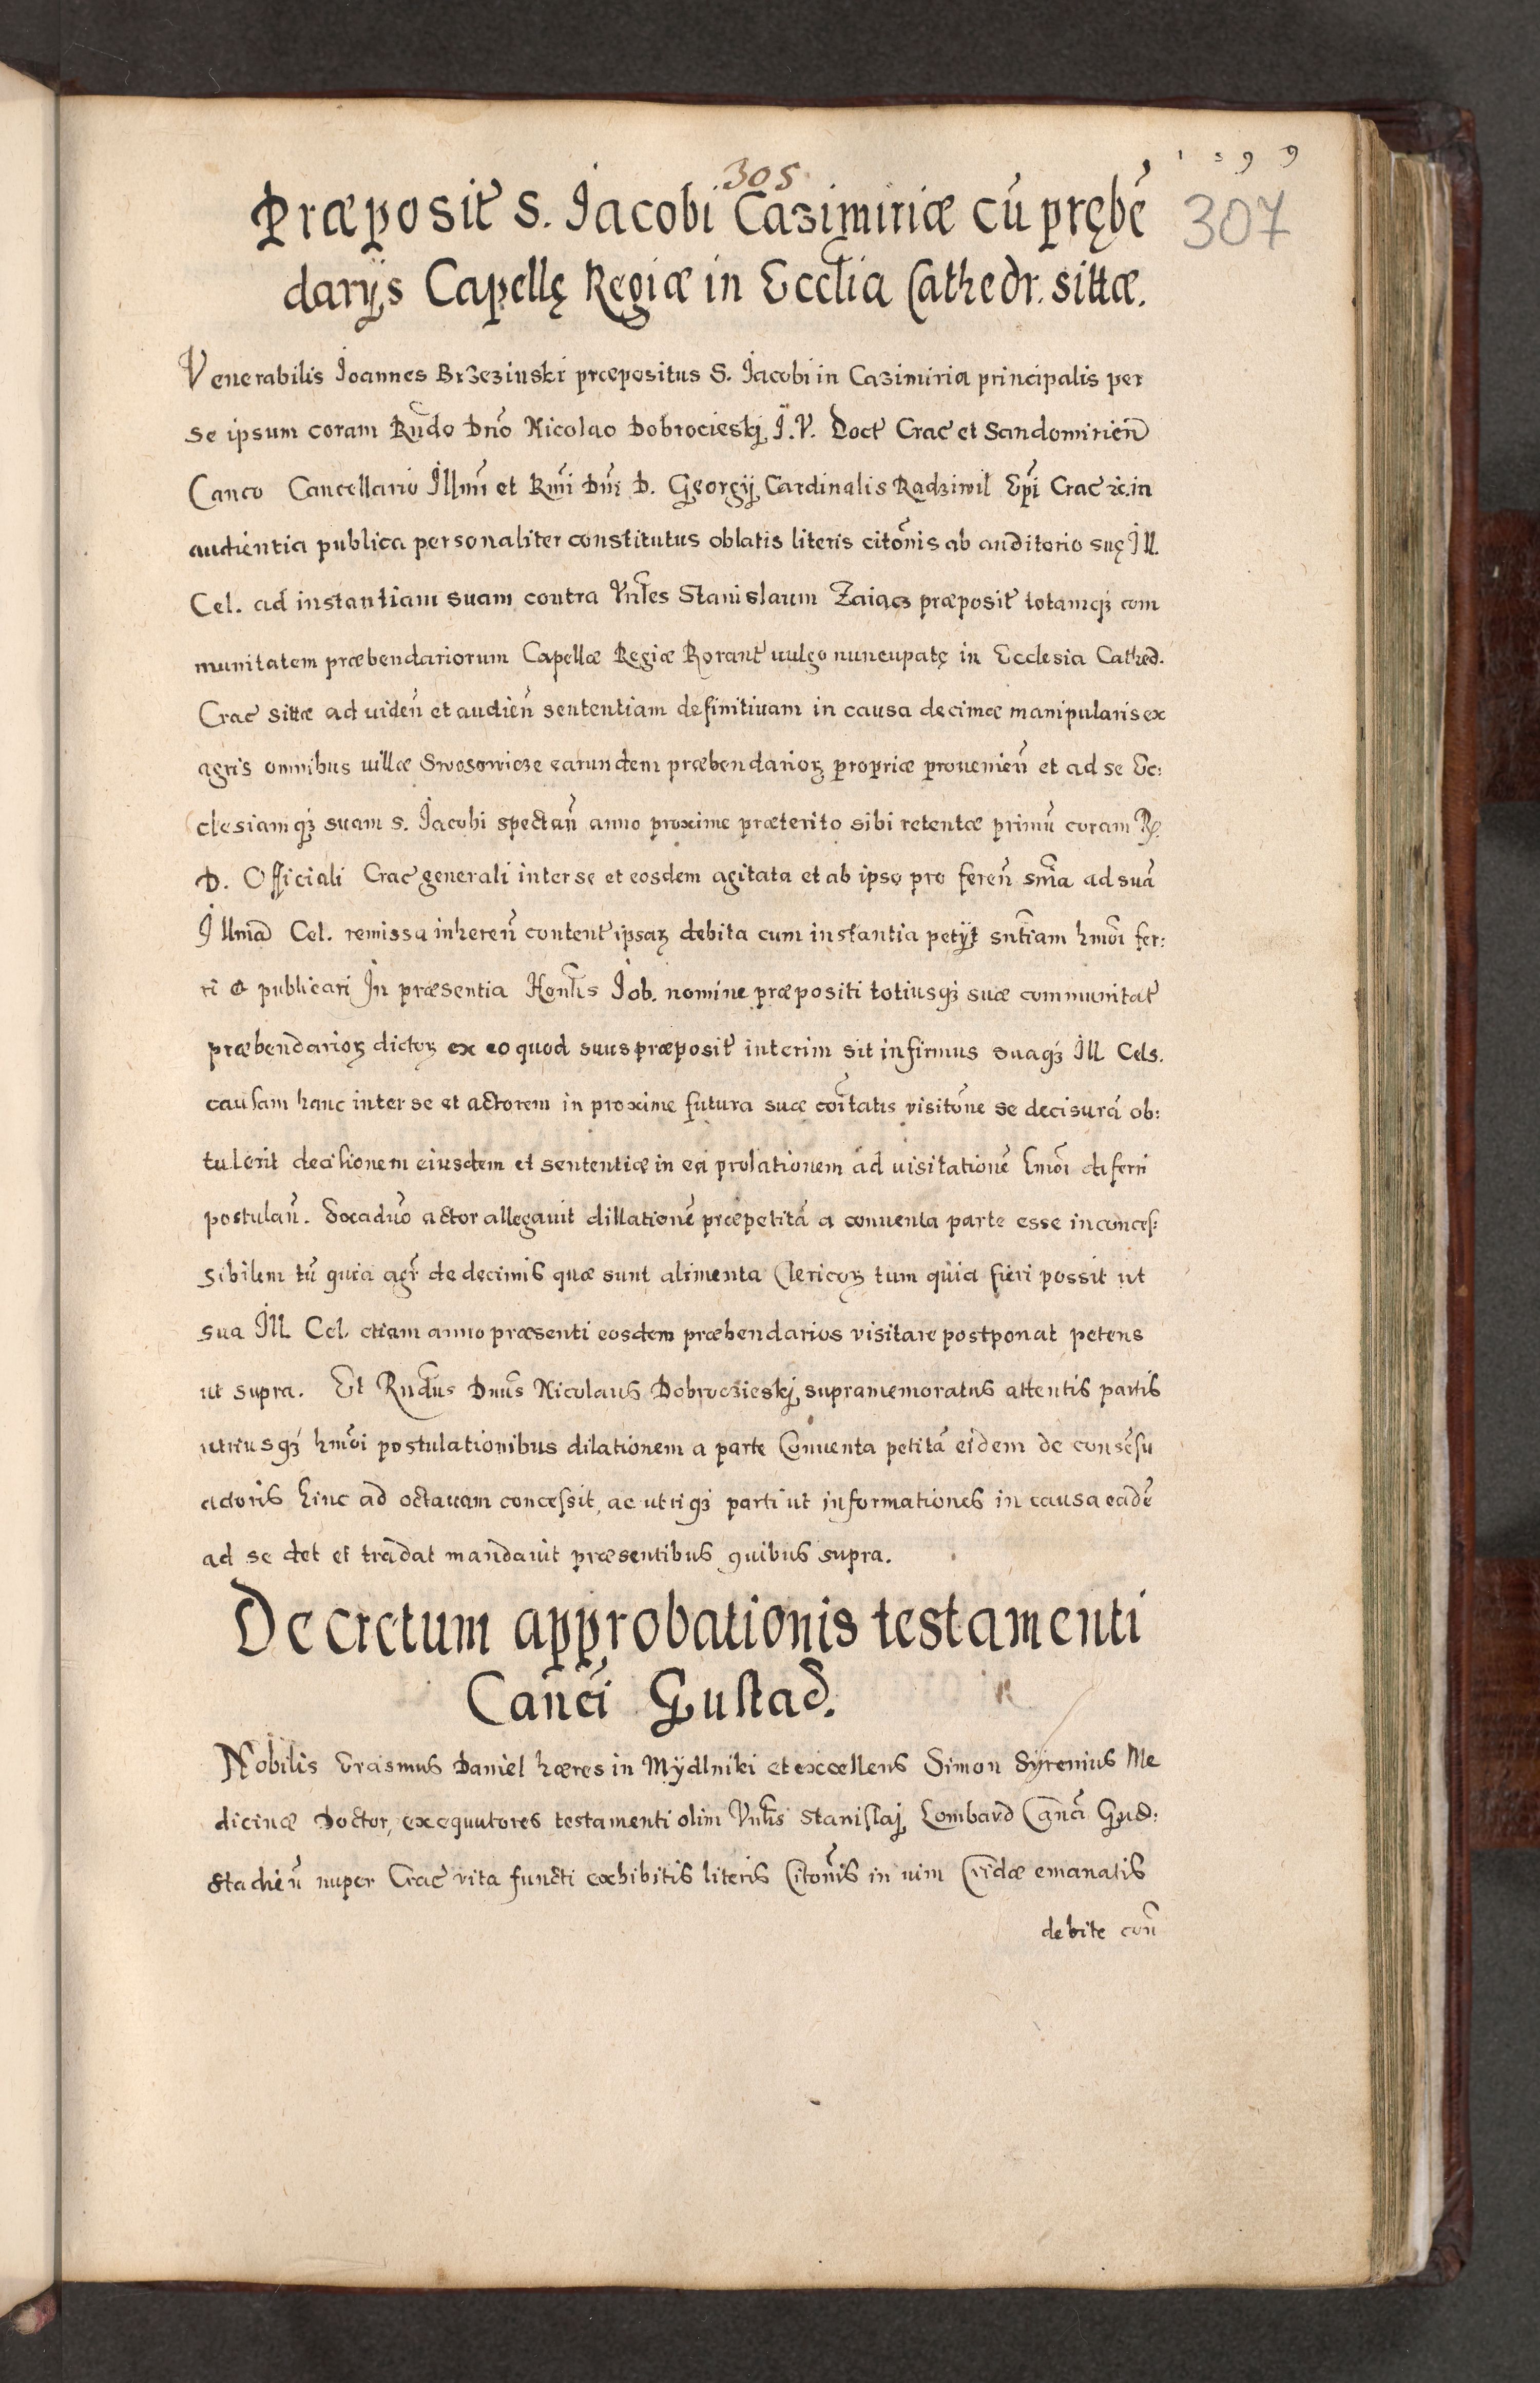 1599
305
307
Præposit̃ S. Jacobi Cazimiriæ cũ prębẽ
darijs Capellę Regiæ in Eccl̃ia Cathedr. sittæ.
Venerabilis Joannes Brzezinski præpositus S. Jacobi in Cazimiria principalis per
se ipsum coram Rñdo Dño Nicolao Dobrocieskj J.V. Doct̃ Crac̃ et Sandomirien̄
Canco Cancellario Illmĩ et Rmĩ Dñi D. Georgij Cardinalis Radziwil Epĩ Crac̃ rc. in
audientia publica personaliter constitutus oblatis literis citõnis ab auditorio suę Ill.
Cel. ad instantiam suam contra Vñles Stanislaum Zaiącz præposit̃ totamqꝫ com
munitatem præbendariorum Capellæ Regiæ Rorant̃ uulgo nuncupatę in Ecclesia Cathed.
Crac̃ sittæ ad uideñ et audieñ sententiam definitiuam in causa decimæ manipularis ex
agris omnibus uillæ Swosowicze earundem præbendarioꝝ propriæ prouenieñ et ad se Ec:
clesiamqꝫ suam S. Jacobi spectañ anno proxime præterito sibi retentæ primũ coram R.
D. Officiali Crac̃ generali inter se et eosdem agitata et ab ipso pro fereñ sñia ad suã
Illmã Cel. remissa inhereñ content̃ ipsaꝝ debita cum instantia petijt sñtiam hmõi fer:
ri & publicari In præsentia Honl̃is Job. nomine præpositi totiusqꝫ suæ communitat̃
præbendarioꝝ dictoꝝ ex eo quod suus præposit̃ interim sit infirmus suaqꝫ Ill Cels.
causam hanc inter se et actorem in proxime futura suæ coĩtatis visitõne se decisurã ob:
tulerit decisionem eiusdem et sententiæ in ea prolationem ad uisitationẽ hmõi differri
postulañ. Exaduõ actor allegauit dillationẽ præpetitã a conuenta parte esse inconcess:
sibilem tũ quia agr̃ de decimis quæ sunt alimenta Clericoꝝ tum quia fieri possit ut
sua Ill. Cel. etiam anno præsenti eosdem præbendarios visitare postponat petens
ut supra. Et Rñdus Dñus Nicolaus Dobroczieskj supramemoratus attentis partis
utriusqꝫ hmõi postulationibus dilationem a parte Conuenta petitã eidem de consẽsu
actoris hinc ad octauam concessit, ac utriqꝫ parti ut informationes in causa eadẽ
ad se det et tradat mandauit præsentibus quibus supra.
Decretum approbationis testamenti
Cañci Gustad.
Nobilis Erasmus Daniel hæres in Mydlniki et excellens Simon Syrenius Me
dicinæ Doctor, exequutores testamenti olim Vñlis Stanislaj Lombard Cañci Gud:
stadieñ nuper Crac̃ vita functi exhibitis literis Citõnis in uim Cridæ emanatis
debite coñ